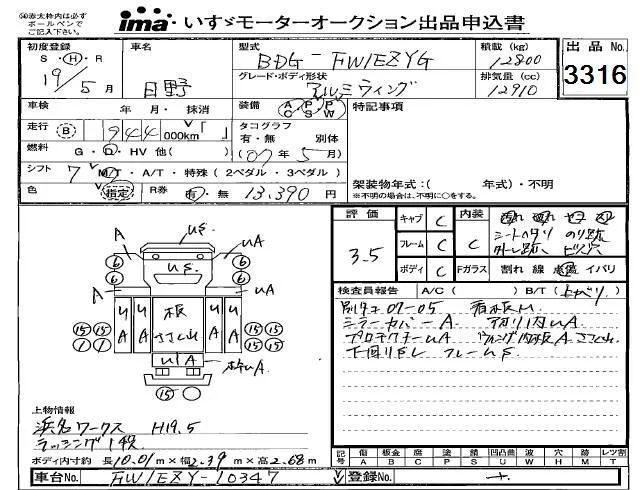 ㊟赤太枠内は必ずボールペンでご記入下さい。
ima・いすゞモーターオークション出品申込書
初度登録 S・H・R 19年 5月
車名 日野
型式 BDG-FW1EZYG
グレード・ボディ形状 アルミウィング
積載 (kg) 12800
排気量 (cc) 12910
出品No. 3316
車検 年・月・抹消
装備 AC・PS・PW
特記事項
走行 B 944000km「 」
タコグラフ 有・無 別体
(07年5月)
燃料 G・D・HV 他( )
シフト 7 M/T・A/T・特殊(2ペダル・3ペダル)
架装物年式:( 年式)・不明
※不明の場合は、不明に○をする。
色 指定 R券 有・無 13,390円
評価 3.5
キャブ C 内装 C
フレーム C
ボディ C Fガラス 割れ 線 点傷 イバリ
シートヘタリ のり跡
外し跡 ビス穴
A US UA
6 US 6
6 A UA 6
UA UA 板 ササクレ UA UA
15 15 15 15
1 1 1 1
U1A 枠UA
15
検査員報告 A/C( )B/T(上ベリ)
別タコ07-05 看板M
ミラーカバーA
プロテクターUA ウィング内板Aササクレ
下回りFL フレームS
上物情報
浜名ワークス H19.5
ラッシング1段
ボディ内寸約 長10.01m×幅2.39m×高2.68m
記号 傷A 板金B 腐C 塗P 錆S 凹凸曲U 波W 穴H 跡M レツ割T
車台No. FW1EZY-10347
登録No.